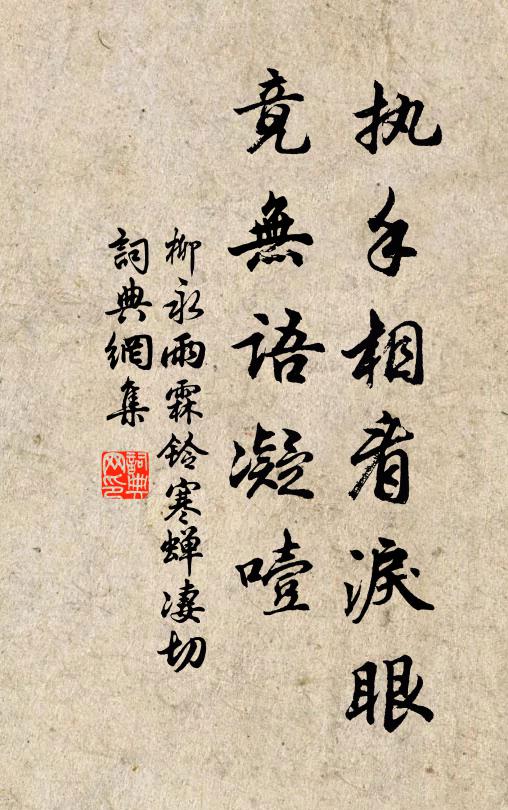 执手相看淚眼
竟無語凝噎
柳永雨霖鈴寒蝉凄切
詞典網集
詞典網印